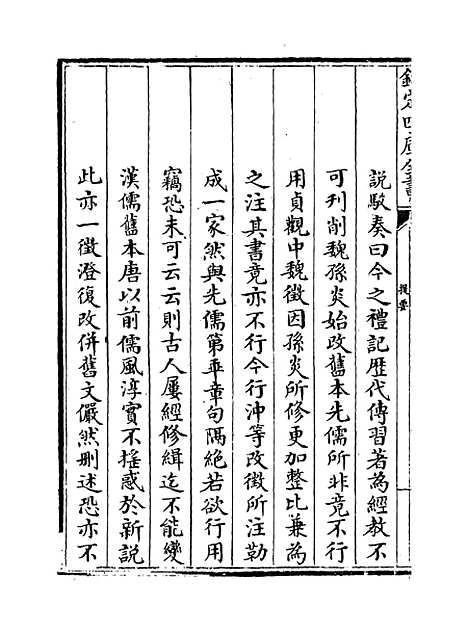 欽定四庫全書
提要
說駁奏曰今之禮記歴代傳習著為經教不
可刋削魏孫炎始改舊本先儒所非竟不行
用貞觀中魏徵因孫炎所修更加整比兼為
之注其書竟亦不行今行沖等改徵所注勒
成一家然與先儒第乖章句隔絶若欲行用
竊恐未可云云則古人屢經修緝迄不能變
漢儒舊本唐以前儒風淳實不揺惑於新說
此亦一徵澄復改併舊文儼然刪述恐亦不